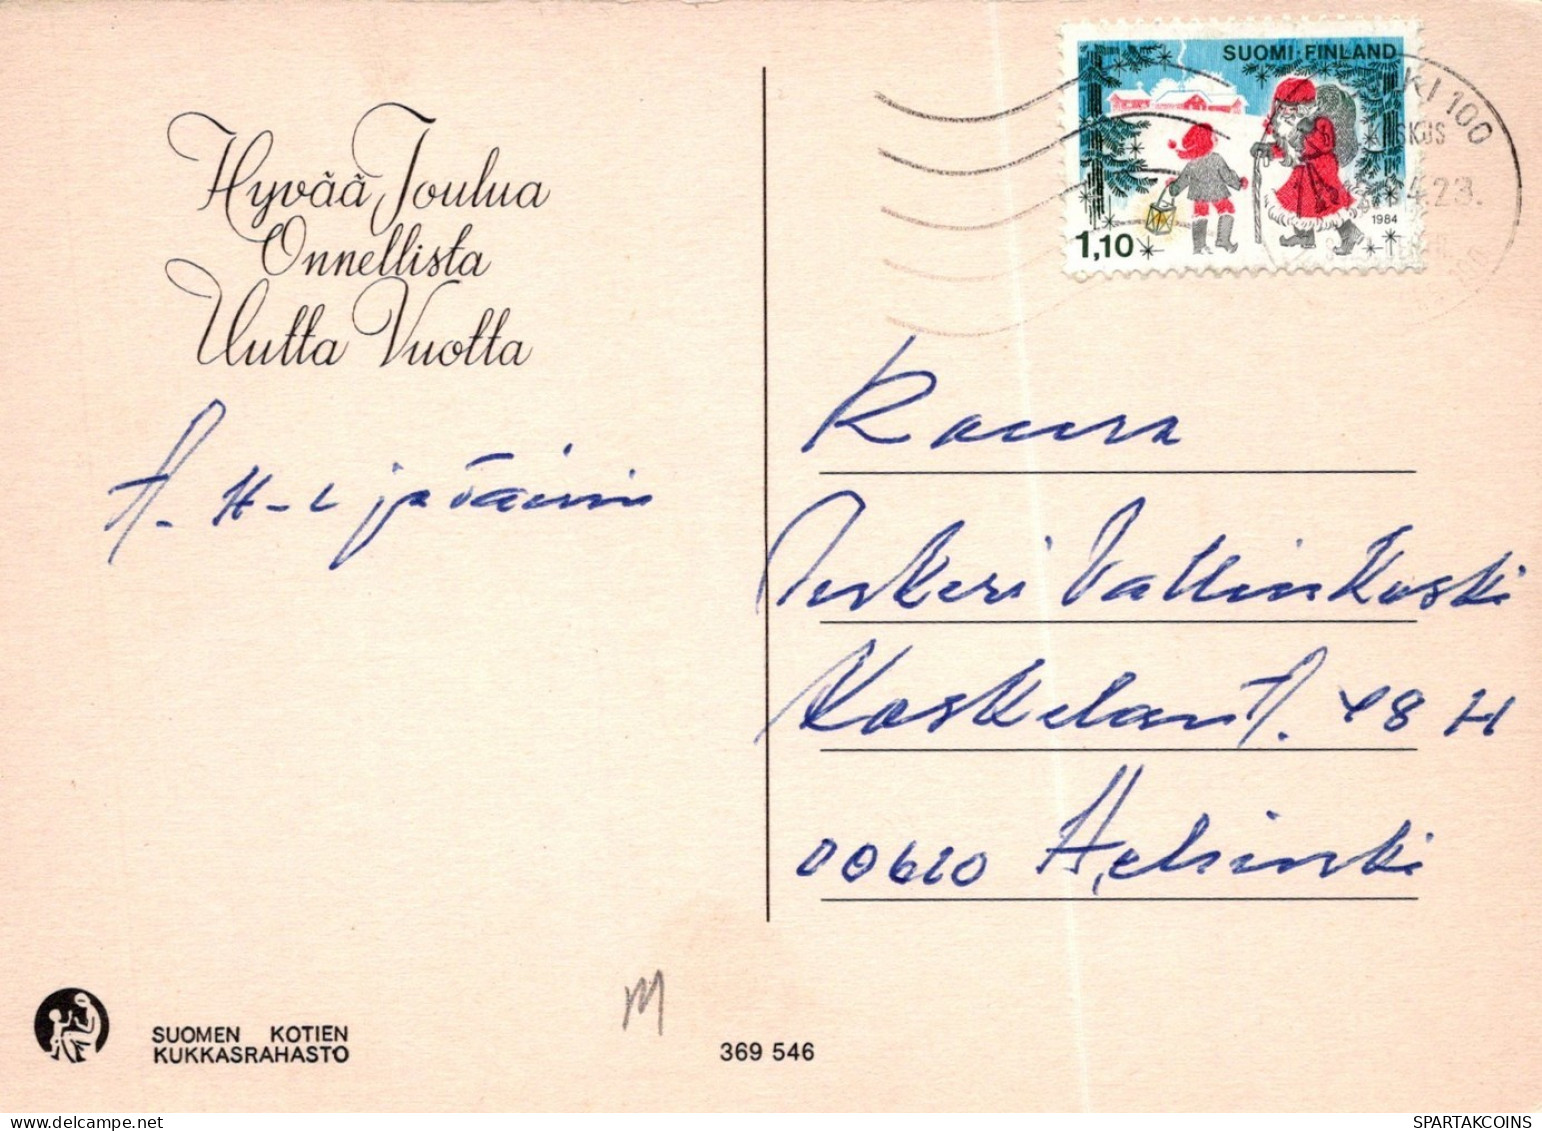 Hyvää Joulua
Onnellista
Uutta Vuotta
A-H-L ja Taimi
SUOMI-FINLAND
1,10
1984
KI 100
KESKUS
4.23.
Raura
Pertteri Vallinkoski
Koskelant. 48 H
00610 Helsinki
M
SUOMEN KOTIEN
KUKKASRAHASTO
369 546
SPARTAKCOINS